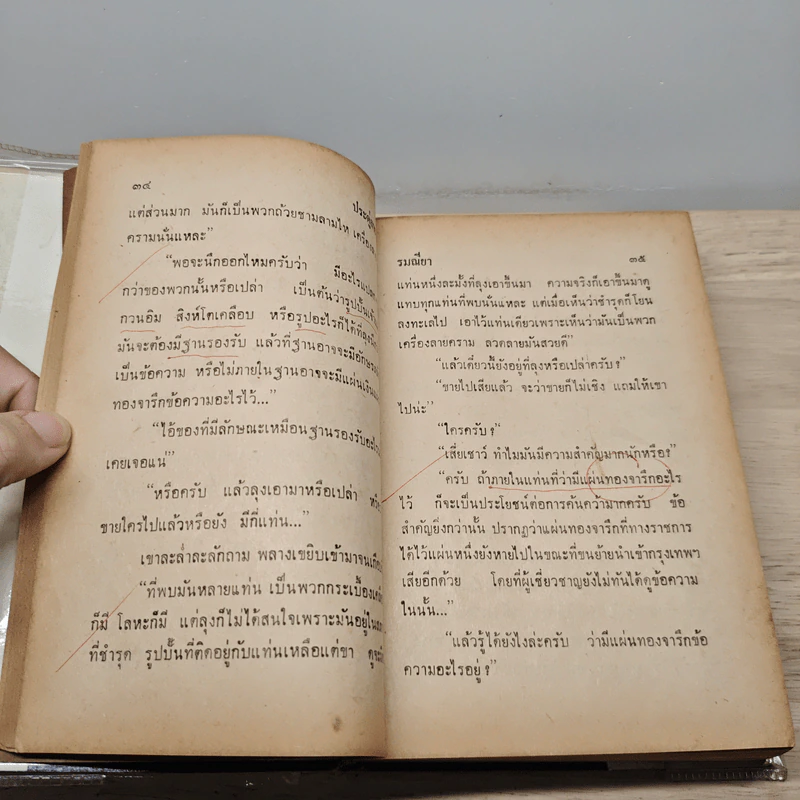 ๓๔
แต่ส่วนมาก มันก็เป็นพวกถ้วยชามลามไห
ครามนั่นแหละ”
“พอจะนึกออกไหมครับว่า มีอะไรแปลก
กว่าของพวกนั้นหรือเปล่า เป็นต้นว่ารูปปั้นเจ้า
กวนอิม สิงห์โตเคลือบ หรือรูปอะไรก็ได้ที่ลุง
มันจะต้องมีฐานรองรับ แล้วที่ฐานอาจจะมีอักษร
เป็นข้อความ หรือไม่ภายในฐานอาจจะมีแผ่นเงิน
ทองจารึกข้อความอะไรไว้...”
“ไอ้ของที่มีลักษณะเหมือนฐานรองรับอะไร
เคยเจอแน่”
“หรือครับ แล้วลุงเอามาหรือเปล่า
ขายใครไปแล้วหรือยัง มีกี่แท่น...”
เขาละล่ำละลักถาม พลางเขยิบเข้ามาจน
“ที่พบมันหลายแท่น เป็นพวกกระเบื้อง
ก็มี โลหะก็มี แต่ลุงก็ไม่ได้สนใจเพราะมันอยู่ใน
ที่ชำรุด รูปปั้นที่ติดอยู่กับแท่นเหลือแต่ขา
รมณียา ๓๕
แท่นหนึ่งละมั้งที่ลุงเอาขึ้นมา ความจริงก็เอาขึ้นมาดู
แทบทุกแท่นที่พบนั่นแหละ แต่เมื่อเห็นว่าชำรุดก็โยน
ลงทะเลไป เอาไว้แท่นเดียวเพราะเห็นว่ามันเป็นพวก
เครื่องลายคราม ลวดลายมันสวยดี”
“แล้วเดี๋ยวนี้ยังอยู่ที่ลุงหรือเปล่าครับ?”
“ขายไปเสียแล้ว จะว่าขายก็ไม่เชิง แถมให้เขา
ไปน่ะ”
“ใครครับ?”
“เสี่ยเชาว์ ทำไมมันมีความสำคัญมากนักหรือ?”
“ครับ ถ้าภายในแท่นที่ว่ามีแผ่นทองจารึกอะไร
ไว้ ก็จะเป็นประโยชน์ต่อการค้นคว้ามากครับ ข้อ
สำคัญยิ่งกว่านั้น ปรากฏว่าแผ่นทองจารึกที่ทางราชการ
ได้ไว้แผ่นหนึ่งยังหายไปในขณะที่ขนย้ายนำเข้ากรุงเทพฯ
เสียอีกด้วย โดยที่ผู้เชี่ยวชาญยังไม่ทันได้ดูข้อความ
ในนั้น...”
“แล้วรู้ได้ยังไงล่ะครับ ว่ามีแผ่นทองจารึกข้อ
ความอะไรอยู่?”